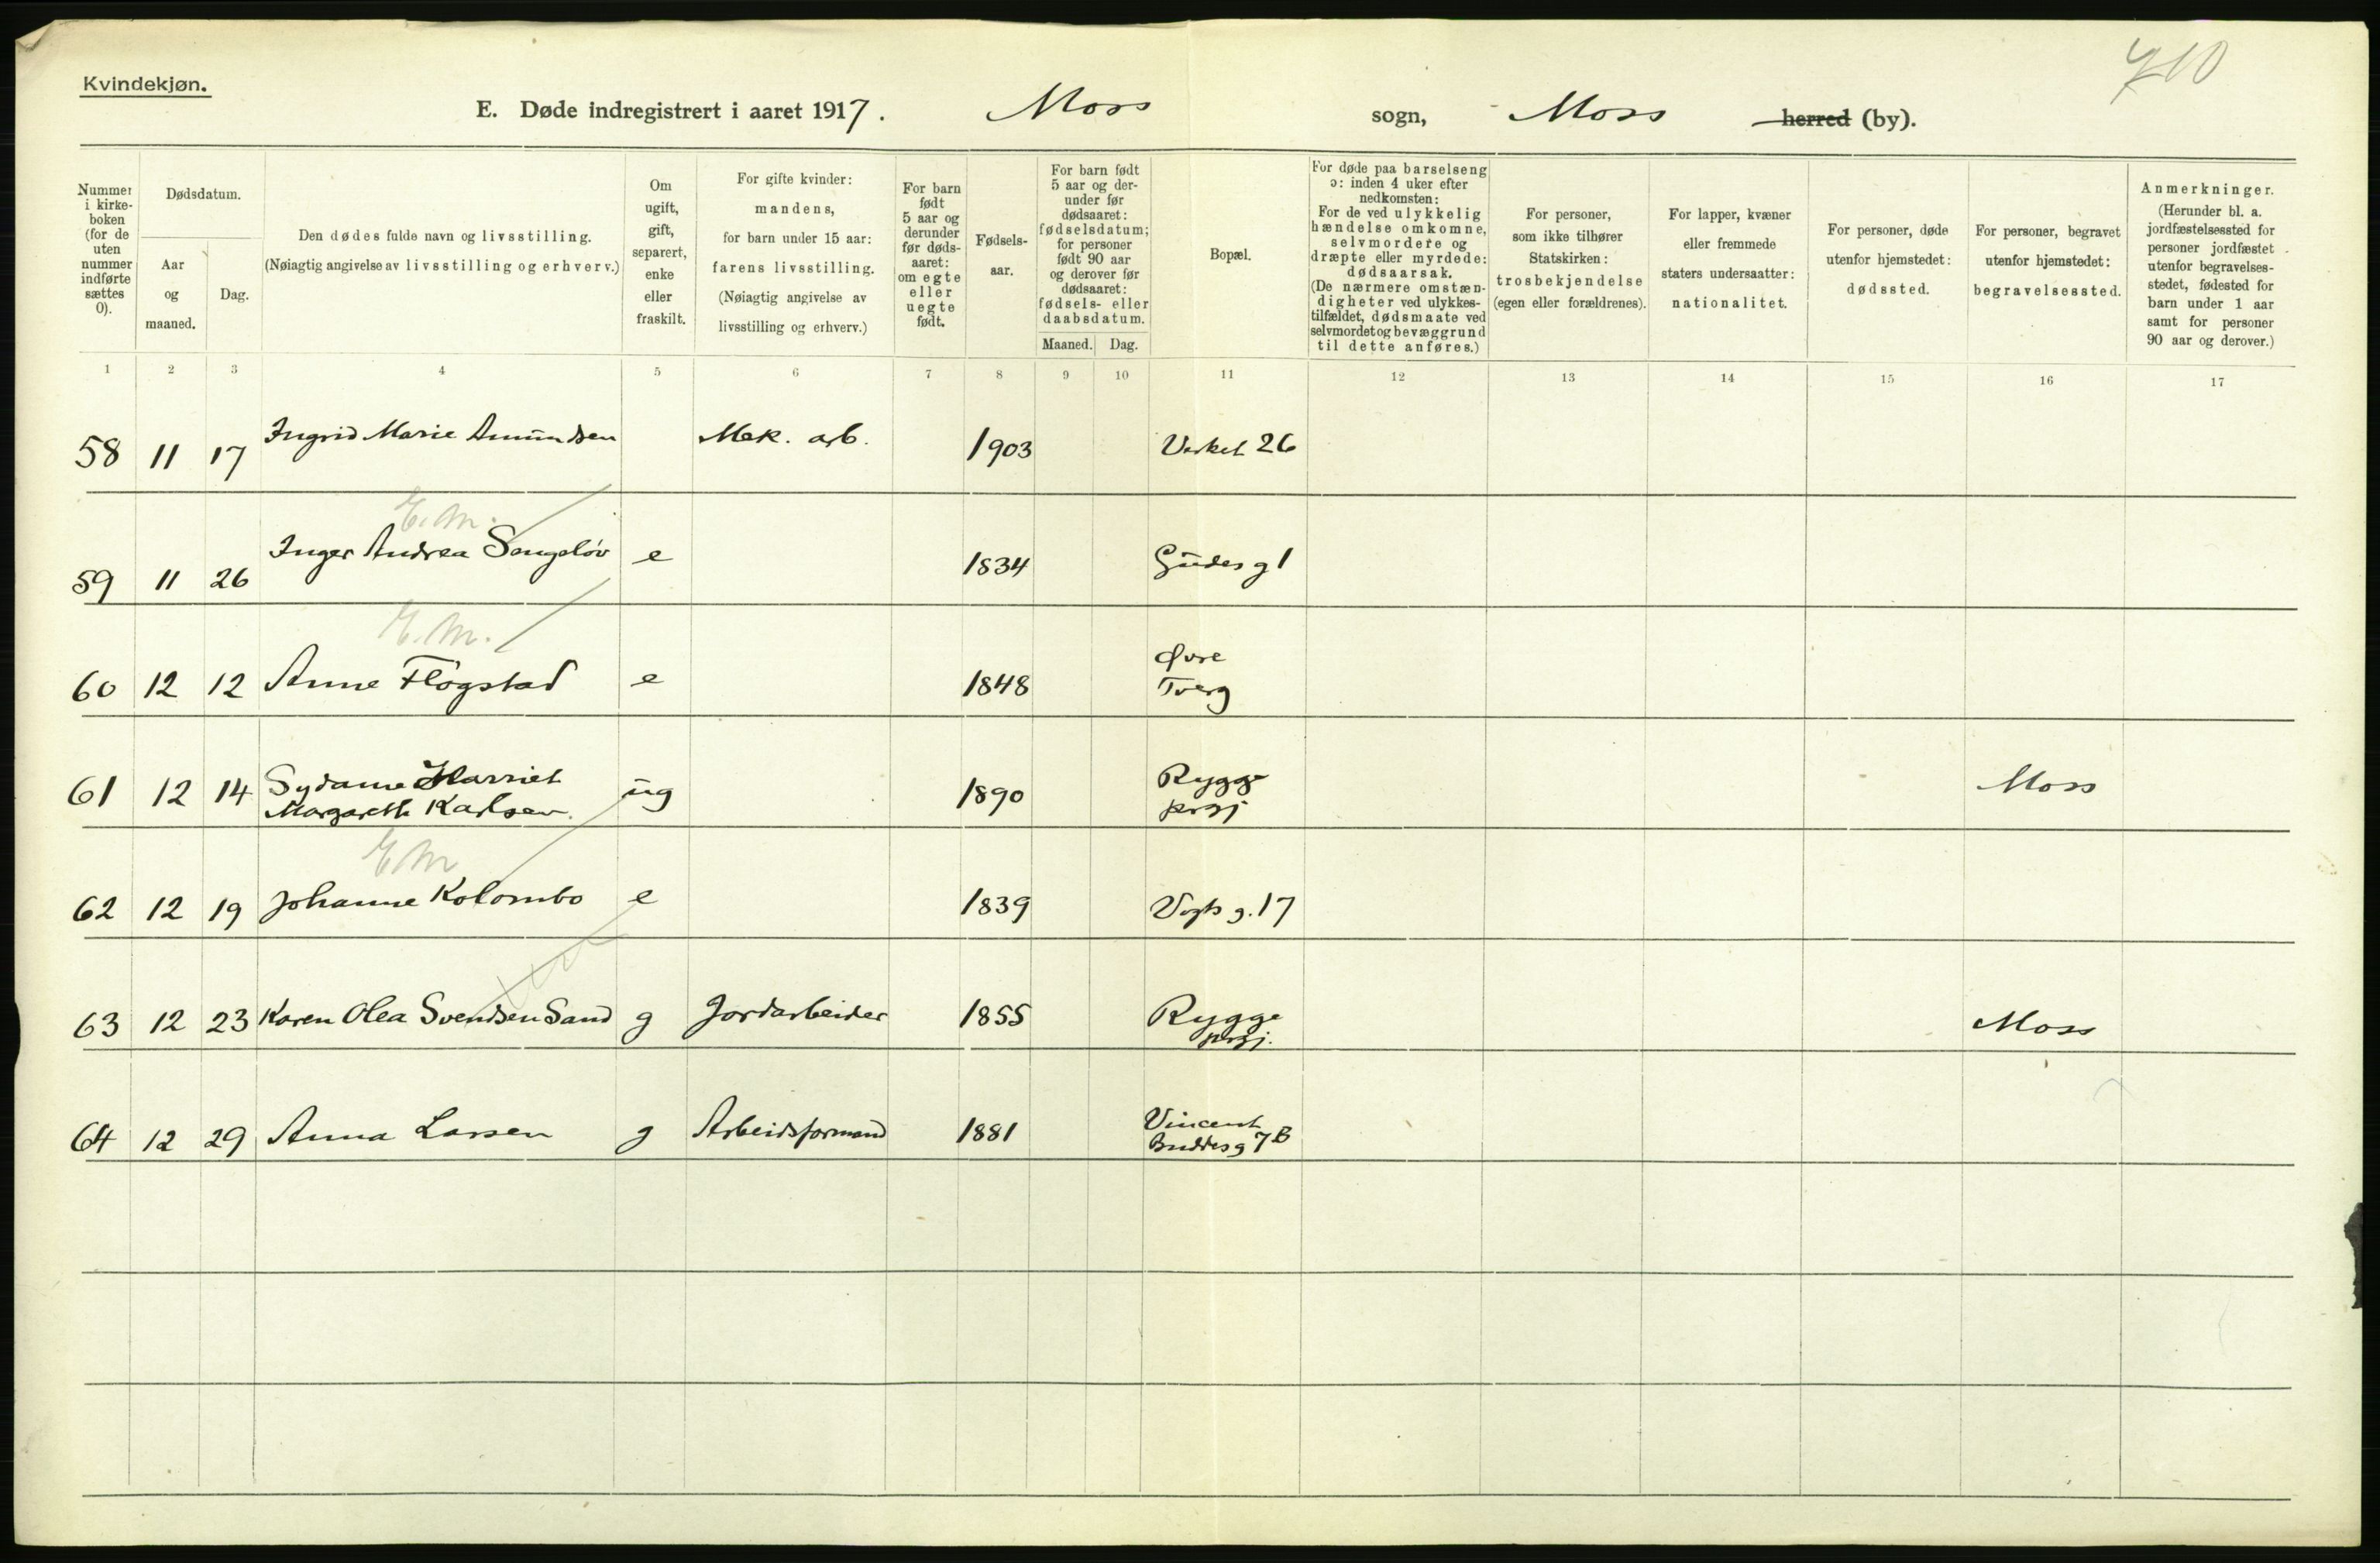 Kvindekjøn.
E. Døde indregistrert i aaret 1917. Moss sogn, Moss herred (by).
Nummer i kirke-boken (for de uten nummer indførte sættes 0).
Dødsdatum.
Aar og maaned.
Dag.
Den dødes fulde navn og livsstilling.
(Nøiagtig angivelse av livsstilling og erhverv.)
Om ugift, gift, separert, enke eller fraskilt.
For gifte kvinder: mandens, for barn under 15 aar: farens livsstilling.
(Nøiagtig angivelse av livsstilling og erhverv.)
For barn født 5 aar og derunder før døds-aaret: om egte eller uegte født.
Fødsels-aar.
For barn født 5 aar og der-under før dødsaaret: fødselsdatum; for personer født 90 aar og derover før dødsaaret: fødsels- eller daabsdatum.
Maaned. Dag.
Bopæl.
For døde paa barselseng ɔ: inden 4 uker efter nedkomsten:
For de ved ulykkelig hændelse omkomne, selvmordere og dræpte eller myrdede: dødsaarsak.
(De nærmere omstæn-digheter ved ulykkes-tilfældet, dødsmaate ved selvmordet og bevæggrund til dette anføres.)
For personer, som ikke tilhører Statskirken: trosbekjendelse (egen eller forældrenes).
For lapper, kvæner eller fremmede staters undersaatter: nationalitet.
For personer, døde utenfor hjemstedet: dødssted.
For personer, begravet utenfor hjemstedet: begravelsessted.
Anmerkninger.
(Herunder bl. a. jordfæstelsessted for personer jordfæstet utenfor begravelses-stedet, fødested for barn under 1 aar samt for personer 90 aar og derover.)
1 2 3 4 5 6 7 8 9 10 11 12 13 14 15 16 17
58 11 17 Ingrid Marie Amundsen Mek. arb. 1903 Verket 26
E.M.
59 11 26 Inger Andrea Sengeløv e 1834 Gudes g 1
E.M.
60 12 12 Anne Flögstad e 1848 Øvre Tverg
61 12 14 Sydame Harriet Margareth Karlsen. ug 1890 Rygge prgj Moss
EM
62 12 19 Johanne Kolombo e 1839 Vogts g. 17
63 12 23 Karen Olea Svendsen Sand g Jordarbeider 1855 Rygge prgj. Moss
64 12 29 Anna Larsen g Arbeidsformand 1881 Vincent Buddes g 7B